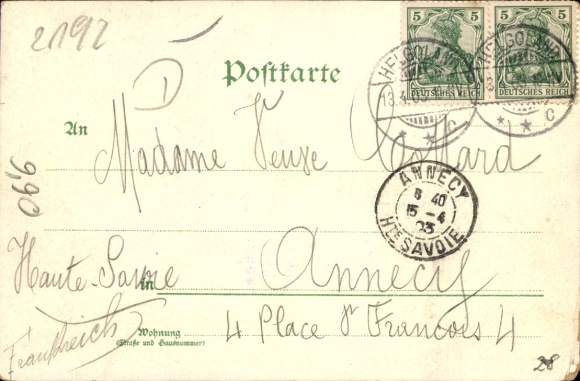 2192
5 5
DEUTSCHES REICH DEUTSCHES REICH
HELGOLAND HELGOLAND
13.4.03
* * C * * C
D
Postkarte
An
Madame Veuve
066
ANNECY
8 40
15 - 4
03
Hte SAVOIE
Haute-Savoie
in Annecy
Frankreich
Wohnung
(Straße und Hausnummer)
4 Place St Francois 4
28